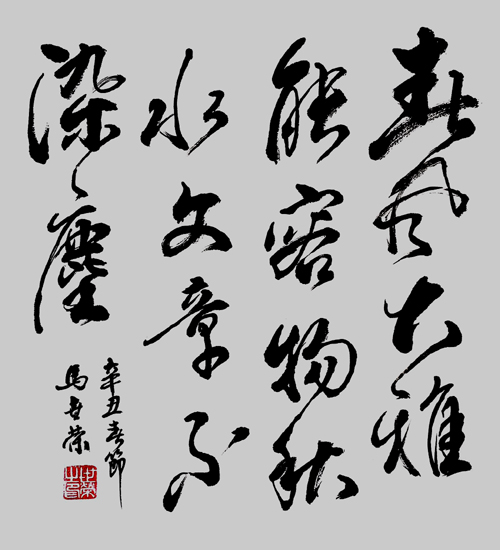 春风大雅
能容物秋
水文章不
染塵
辛丑春節
馬世榮